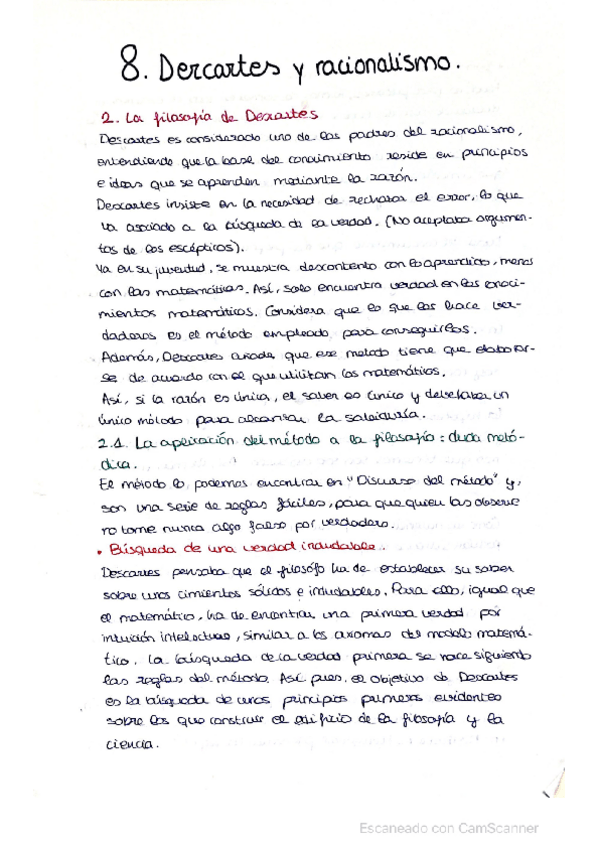 8. Dercartes y racionalismo.
2. La filosofía de Descartes
Descartes es considerado uno de los padres del racionalismo,
entendiendo que la base del conocimiento reside en principios
e ideas que se aprenden mediante la razón.
Descartes insiste en la necesidad de rechazar el error, lo que
va asociado a la búsqueda de la verdad. (No aceptaba argumen-
tos de los escépticos).
Ya en su juventud, se muestra descontento con lo aprendido, menos
con las matemáticas. Así, solo encuentra verdad en los conoci-
mientos matemáticos. Considera que lo que los hace ver-
daderos es el método empleado para conseguirlos.
Además, Descartes añade, que ese metodo tiene que elaborar-
se de acuerdo con el que utilitan los matemáticos.
Así, si la razón es única, el saber es único y debe haber un
único método para alcanzar la sabiduría.
2.1. La aplicación del método a la filosofía: duda metó-
dica.
El método lo podemos encontrar en "Discurso del método" y,
son una serie de reglas fáciles, para que quien las observe
no tome nunca algo falso por verdadero.
• Búsqueda de una verdad indudable.
Descartes pensaba que el filósofo ha de establecer su saber
sobre unos cimientos sólidos e indudables. Para ello, igual que
el matemático, ha de encontrar una primera verdad por
intuición intelectual, similar a los axiomas del modelo matemá-
tico. La búsqueda de la verdad primera se hace siguiendo
las reglas del método. Así pues, el objetivo de Descartes
es la búsqueda de unos principios primeros evidentes
sobre los que construir el edificio de la filosofía y la
ciencia.
Escaneado con CamScanner